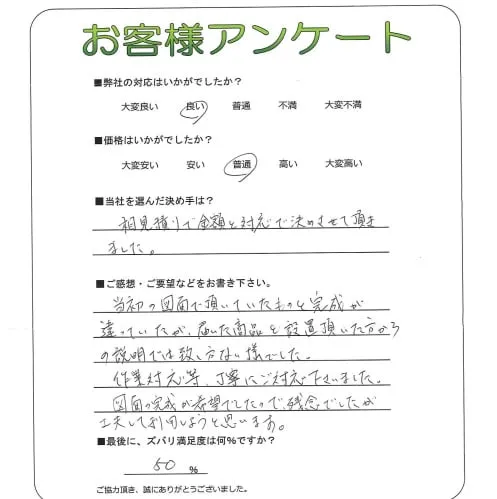 お客様アンケート
■弊社の対応はいかがでしたか？
大変良い 良い 普通 不満 大変不満
■価格はいかがでしたか？
大変安い 安い 普通 高い 大変高い
■当社を選んだ決め手は？
相見積りで金額と対応で決めさせて頂き
ました。
■ご感想・ご要望などをお書き下さい。
当初の図面で頂いていたものと完成が
違っていたが、届いた商品と設置頂いた方から
の説明では致し方ない様でした。
作業対応等、丁寧にご対応下さいました。
図面の完成が希望でしたので、残念でしたが
工夫して利用しようと思います。
■最後に、ズバリ満足度は何%ですか？
50 %
ご協力頂き、誠にありがとうございました。